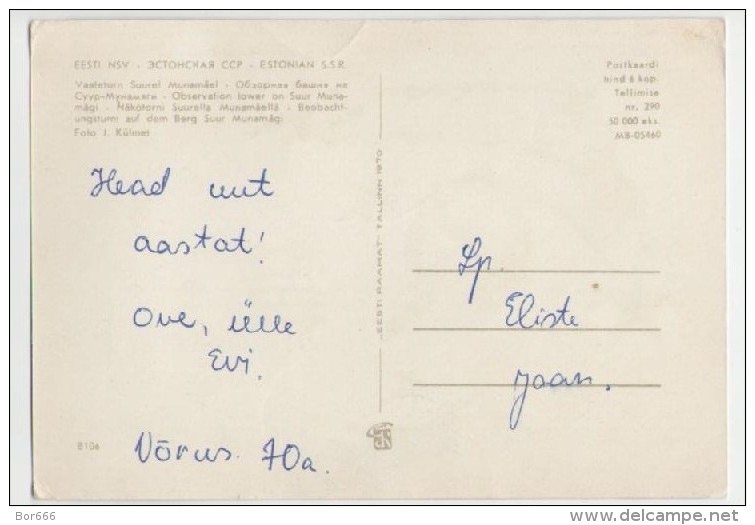 EESTI NSV - ЭСТОНСКАЯ ССР - ESTONIAN S.S.R.
Vaatetorn Suurel Munamäel - Обзорная башня на
Суур-Мунамяги - Observation tower on Suur Muna-
mägi - Näkötorni Suurella Munamäellä - Beobacht-
ungsturm auf dem Berg Suur Munamägi
Foto J. Külmet
Head uut
aastat!
Ove, Ülle
Evi.
Võrus. 70a.
8106
„EESTI RAAMAT" TALLINN 1970
Postkaardi
hind 6 kop.
Tellimise
nr. 290
50 000 eks.
MB-05460
Lp.
Eliste
Jaan.
Bor666
http://www.delcampe.net